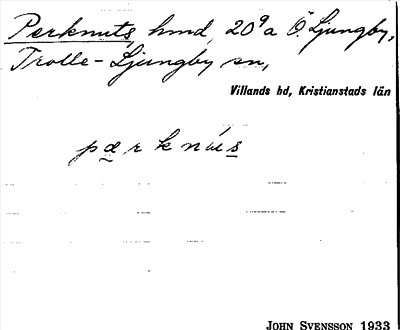 Perknuts, hmd, 20⁹a Ö. Ljungby,
Trolle-Ljungby sn,
Villands hd, Kristianstads län
JOHN SVENSSON 1933